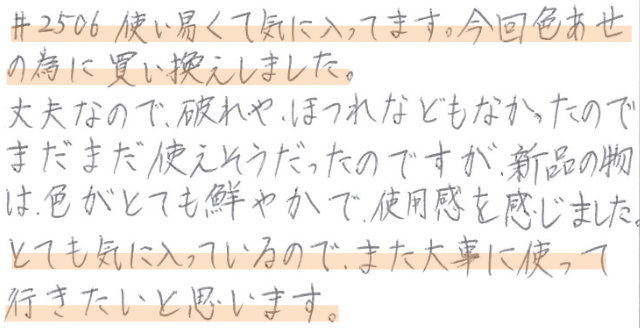 #2506 使い易くて気に入ってます。今回色あせ
の為に買い換えしました。
丈夫なので、破れや、ほつれなどもなかったので
まだまだ使えそうだったのですが、新品の物
は、色がとても鮮やかで、使用感を感じました。
とても気に入っているので、また大事に使って
行きたいと思います。